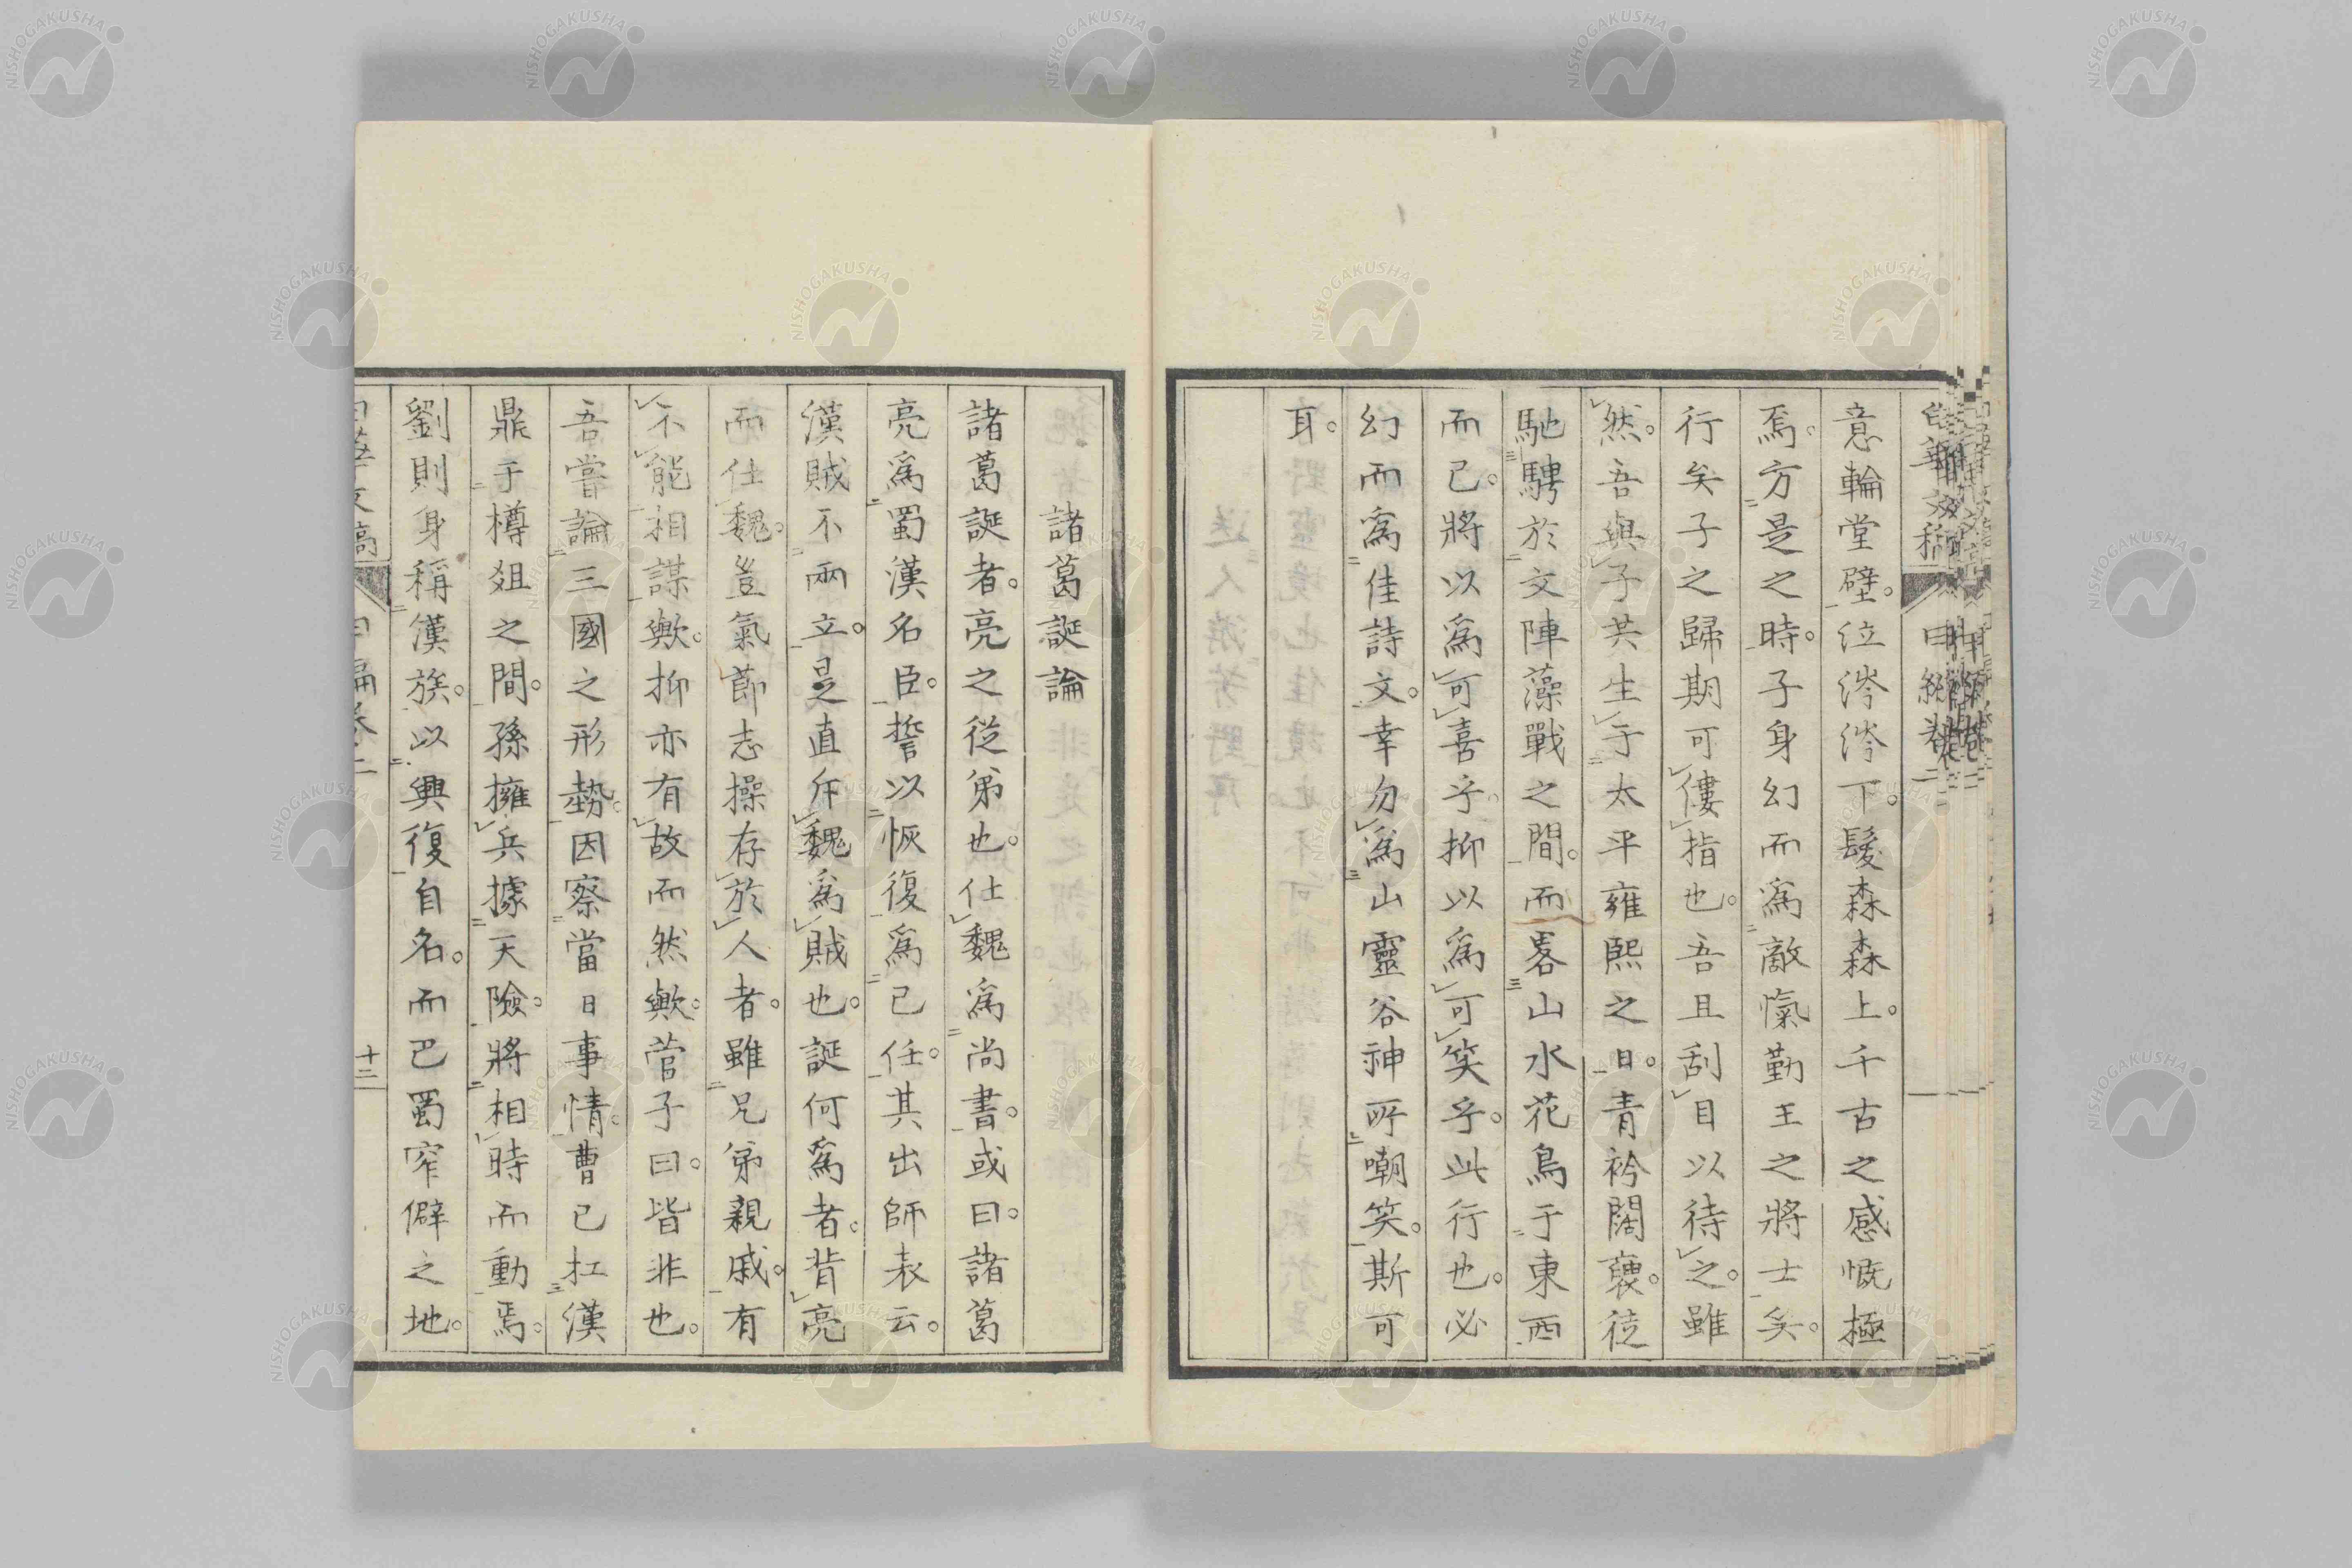 意輪堂壁。泣涔涔下。髮森森上。千古之感慨極
焉。方是之時。子身幻而爲敵愾勤王之將士矣。
行矣子之歸期可僂指也。吾且刮目以待之。雖
然。吾與子共生于太平雍熙之日。青衿闊褎。徒
馳騁於文陣藻戰之間。而畧山水花鳥于東西
而已。將以爲可喜乎。抑以爲可笑乎。此行也。必
幻而爲佳詩文。幸勿爲山靈谷神所嘲笑。斯可
耳。
諸葛誕論
諸葛誕者。亮之從弟也。仕魏爲尚書。或曰。諸葛
亮爲蜀漢名臣。誓以恢復爲己任。其出師表云。
漢賊不兩立。是直斥魏爲賊也。誕何爲者。背亮
而仕魏。豈氣節志操存於人者。雖兄弟親戚。有
不能相謀歟。抑亦有故而然歟。菅子曰。皆非也。
吾嘗論三國之形勢。因察當日事情。曹已扛漢
鼎于樽俎之間。孫擁兵據天險。將相時而動焉。
劉則身稱漢族。以興復自名。而巴蜀窄僻之地。
十二